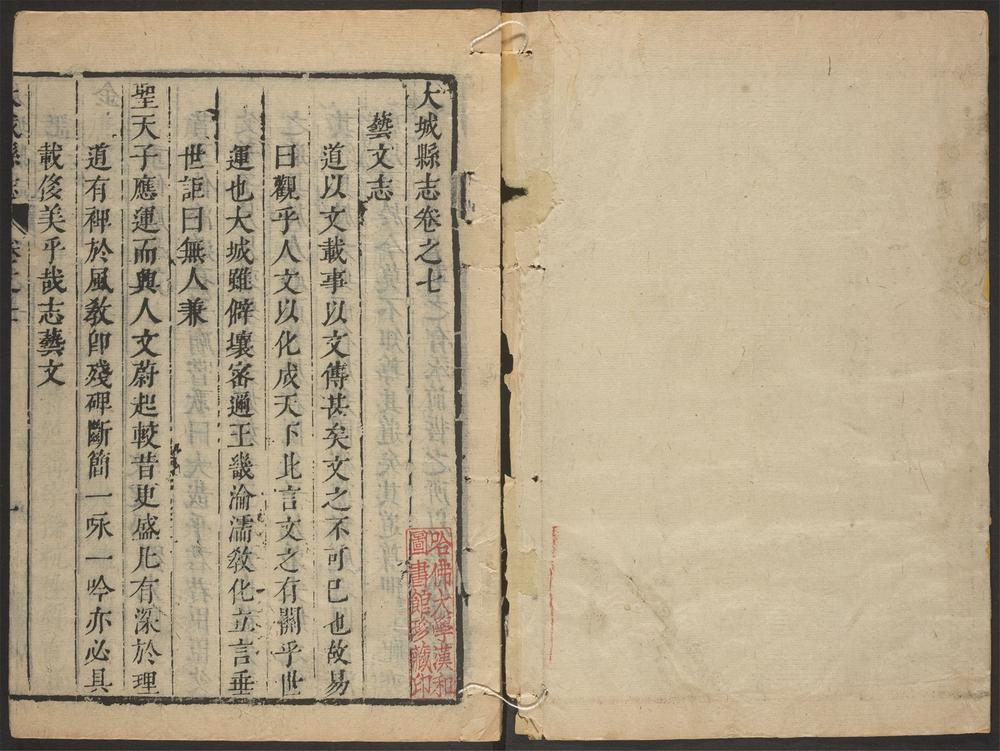 大城縣志卷之七
藝文志
道以文載事以文傳甚矣文之不可已也故易
曰觀乎人文以化成天下此言文之有關乎世
運也大城雖僻壤密邇王畿淪濡敎化立言垂
世詎曰無人兼
聖天子應運而興人文蔚起較昔更盛凡有深於理
道有裨於風敎卽殘碑斷簡一咏一吟亦必具
載後美乎哉志藝文
大城縣志
卷之七
哈佛大學漢和
圖書館珍藏印